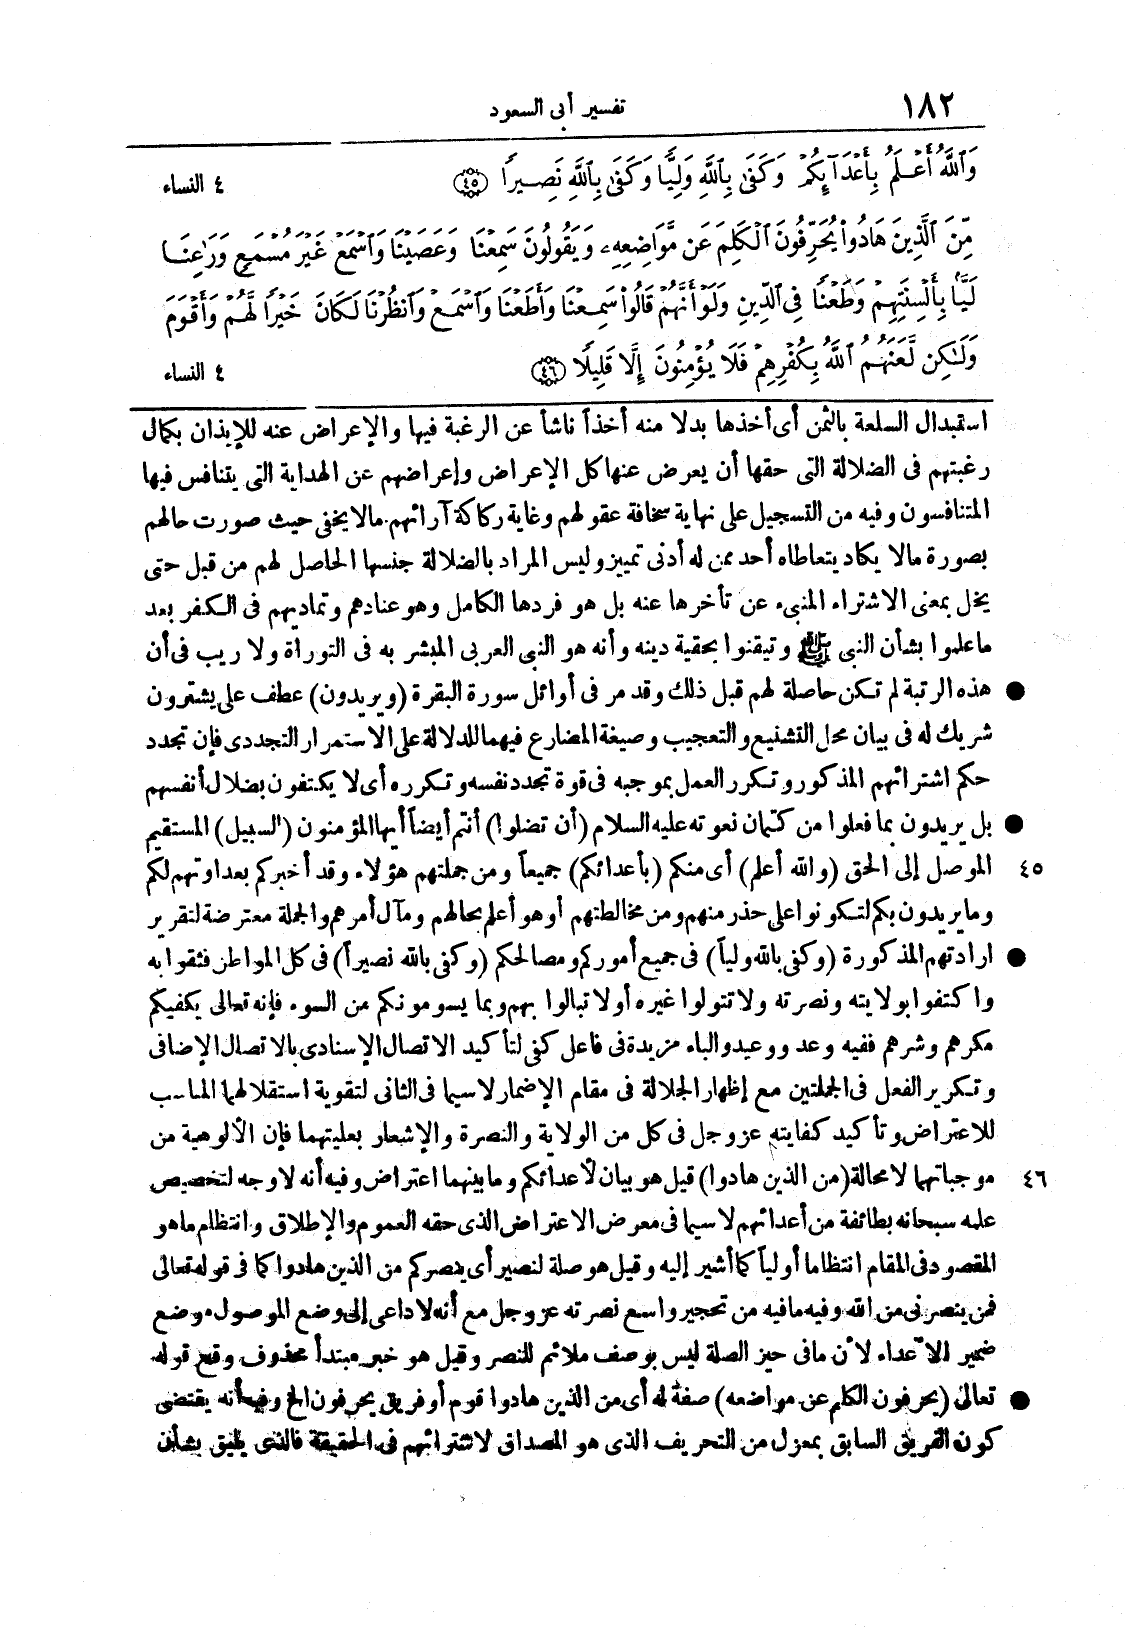 ١٨٢
تفسير أبى السعود
وَٱللَّهُ أَعْلَمُ بِأَعْدَآئِكُمْ وَكَفَىٰ بِٱللَّهِ وَلِيًّا وَكَفَىٰ بِٱللَّهِ نَصِيرًا ٤٥
٤ النساء
مِّنَ ٱلَّذِينَ هَادُوا۟ يُحَرِّفُونَ ٱلْكَلِمَ عَن مَّوَاضِعِهِۦ وَيَقُولُونَ سَمِعْنَا وَعَصَيْنَا وَٱسْمَعْ غَيْرَ مُسْمَعٍ وَرَٰعِنَا
لَيًّۢا بِأَلْسِنَتِهِمْ وَطَعْنًا فِى ٱلدِّينِ وَلَوْ أَنَّهُمْ قَالُوا۟ سَمِعْنَا وَأَطَعْنَا وَٱسْمَعْ وَٱنظُرْنَا لَكَانَ خَيْرًا لَّهُمْ وَأَقْوَمَ
وَلَـٰكِن لَّعَنَهُمُ ٱللَّهُ بِكُفْرِهِمْ فَلَا يُؤْمِنُونَ إِلَّا قَلِيلًا ٤٦
٤ النساء
استبدال السلعة بالثمن أى أخذها بدلا منه أخذاً ناشأ عن الرغبة فيها والإعراض عنه للإيذان بكمال
رغبتهم فى الضلالة التى حقها أن يعرض عنها كل الإعراض وإعراضهم عن الهداية التى يتنافس فيها
المتنافسون وفيه من التسجيل على نهاية سخافة عقولهم وغاية ركاكة آرائهم مالا يخفى حيث صورت حالهم
بصورة مالا يكاد يتعاطاه أحد ممن له أدنى تمييز وليس المراد بالضلالة جنسها الحاصل لهم من قبل حتى
يخل بمعنى الاشتراء المنبىء عن تأخرها عنه بل هو فردها الكامل وهو عنادهم وتماديهم فى الكفر بعد
ما علموا بشأن النبى ﷺ وتيقنوا بحقية دينه وأنه هو النبى العربى المبشر به فى التوراة ولا ريب فى أن
● هذه الرتبة لم تكن حاصلة لهم قبل ذلك وقد مر فى أوائل سورة البقرة (ويريدون) عطف على يشترون
شريك له فى بيان محل التشنيع والتعجيب وصيغة المضارع فيهما للدلالة على الاستمرار التجددى فإن تجدد
حكم اشترائهم المذكور وتكرر العمل بموجبه فى قوة تجدد نفسه وتكرره أى لا يكتفون بضلال أنفسهم
● بل يريدون بما فعلوا من كتمان نعوته عليه السلام (أن تضلوا) أنتم أيضاً أيها المؤمنون (السبيل) المستقيم
٤٥ الموصل إلى الحق (والله أعلم) أى منكم (بأعدائكم) جميعاً ومن جملتهم هؤلاء وقد أخبركم بعداوتهم لكم
وما يريدون بكم لتكونوا على حذر منهم ومن مخالطتهم أو هو أعلم بحالهم ومآل أمرهم والجملة معترضة لتقرير
● ارادتهم المذكورة (وكفى بالله ولياً) فى جميع أموركم ومصالحكم (وكفى بالله نصيراً) فى كل المواطن فثقوا به
واكتفوا بولايته ونصرته ولا تتولوا غيره أو لا تبالوا بهم وبما يسومونكم من السوء فإنه تعالى يكفيكم
مكرهم وشرهم ففيه وعد ووعيد والباء مزيدة فى فاعل كفى لتأكيد الاتصال الإسنادى بالاتصال الإضافى
وتكرير الفعل فى الجملتين مع إظهار الجلالة فى مقام الإضمار لاسيما فى الثانى لتقوية استقلالهما المناسب
للاعتراض وتأكيد كفايته عز وجل فى كل من الولاية والنصرة والإشعار بعليتهما فإن الألوهية من
٤٦ موجباتهما لا محالة (من الذين هادوا) قيل هو بيان لأعدائكم وما بينهما اعتراض وفيه أنه لا وجه لتخصيص
علمه سبحانه بطائفة من أعدائهم لاسيما فى معرض الاعتراض الذى حقه العموم والإطلاق وانتظام ما هو
المقصود فى المقام انتظاما أولياً كما أشير إليه وقيل هو صلة لنصير أى ينصركم من الذين هادوا كما فى قوله تعالى
فمن ينصرنى من الله وفيه ما فيه من تحجير واسع نصرته عز وجل مع أنه لا داعى إلى وضع الموصول موضع
ضمير الأعداء لأن ما فى حيز الصلة ليس بوصف ملائم للنصر وقيل هو خبر مبتدأ محذوف وقع قوله
● تعالى (يحرفون الكلم عن مواضعه) صفة له أى من الذين هادوا قوم أو فريق يحرفون الخ وفيه أنه يقتضى
كون الفريق السابق بمعزل من التحريف الذى هو المصداق لاشترائهم فى الحقيقة فالذى يليق بشأن